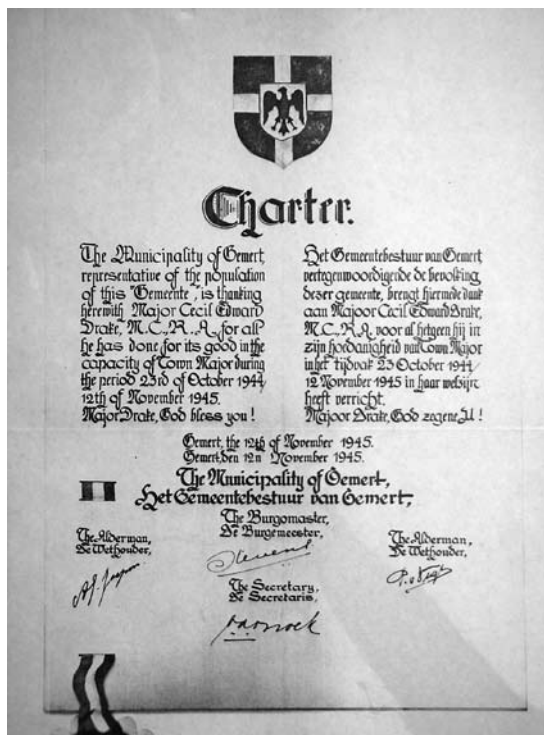 Charter.
The Municipality of Gemert,
representative of the population
of this "Gemeente", is thanking
herewith Major Cecil Edward
Drake, M.C., R.A., for all
he has done for its good in the
capacity of Town Major during
the period 23rd of October 1944/
12th of November 1945.
Major Drake, God bless you!
Het Gemeentebestuur van Gemert,
vertegenwoordigende de bevolking
dezer gemeente, brengt hiermede dank
aan Majoor Cecil Edward Drake,
M.C., R.A. voor al hetgeen hij in
zijn hoedanigheid van Town Major
in het tijdvak 23 October 1944/
12 November 1945 in haar welzijn
heeft verricht.
Majoor Drake, God zegene U!
Gemert, the 12th of November 1945.
Gemert, den 12n November 1945.
The Municipality of Gemert,
Het Gemeentebestuur van Gemert,
The Burgomaster,
De Burgemeester,
The Alderman,
De Wethouder,
The Alderman,
De Wethouder,
The Secretary,
De Secretaris,